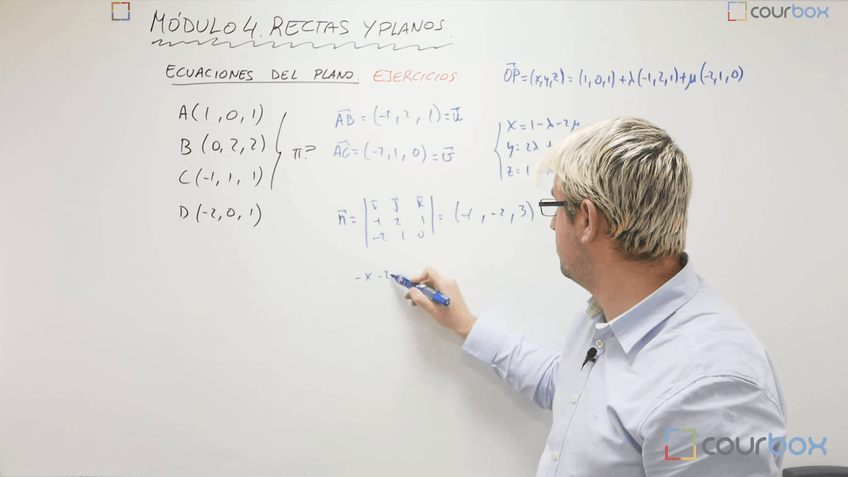 MÓDULO 4. RECTAS Y PLANOS.
courbox
ECUACIONES DEL PLANO. EJERCICIOS
OP=(x,y,z)=(1,0,1)+λ(-1,2,1)+μ(-2,1,0)
A(1,0,1)
B(0,2,2)
C(-1,1,1)
D(-2,0,1)
π?
AB=(-1,2,1)=u
AC=(-2,1,0)=v
x=1-λ-2μ
y=2λ
z=1
n= | i j k | = (-1,-2,3)
-1 2 1
-2 1 0
-x-2
courbox